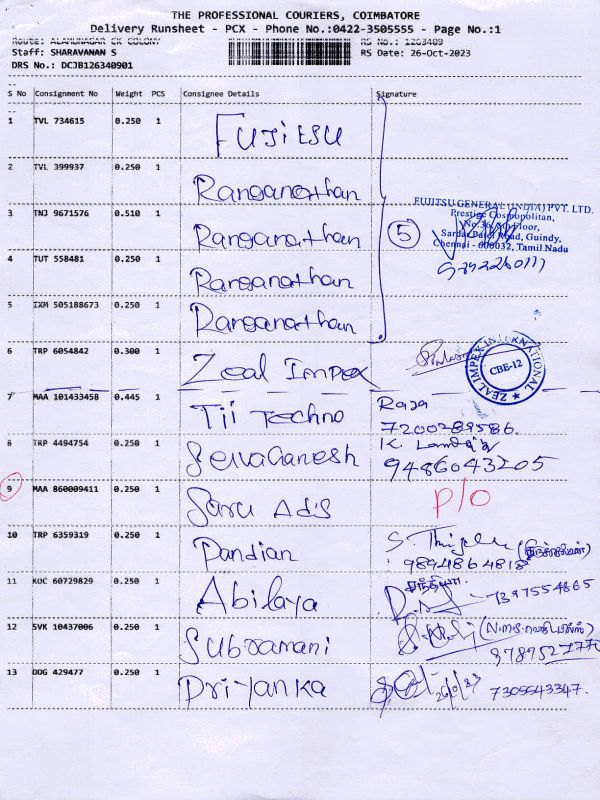 THE PROFESSIONAL COURIERS, COIMBATORE
Delivery Runsheet - PCX - Phone No.:0422-3505555 - Page No.:1
Route: ALAMUNAGAR CK COLONY RS No.: 1263409
Staff: SHARAVANAN S RS Date: 26-Oct-2023
DRS No.: DCJB126340901
S No Consignment No Weight PCS Consignee Details Signature
1 TVL 734615 0.250 1 FUJITSU
2 TVL 399937 0.250 1 Ranganathan
FUJITSU GENERAL (INDIA) PVT. LTD.
Prestige Cosmopolitan,
3 TNJ 9671576 0.510 1 Ranganathan 5
Sardar Patel Road, Guindy,
Chennai - 600032, Tamil Nadu
4 TUT 558481 0.250 1 Ranganathan
5 IXM 505188673 0.250 1 Ranganathan
6 TRP 6054842 0.300 1 Zeal Impex
ZEAL IMPEX INTERNATIONAL
CBE-12
7 MAA 101433458 0.445 1 Tii Techno Raja
7200289586.
8 TRP 4494754 0.250 1 SelvaGanesh K.
9486043205
9 MAA 860009411 0.250 1 Saru Ads P/O
10 TRP 6359319 0.250 1 Pandian S.
9894864818
11 KOC 60729829 0.250 1 Abilaya 7397554865
12 SVK 10437006 0.250 1 Subramani
9787527770
13 DDG 429477 0.250 1 Priyanka 7305543347.